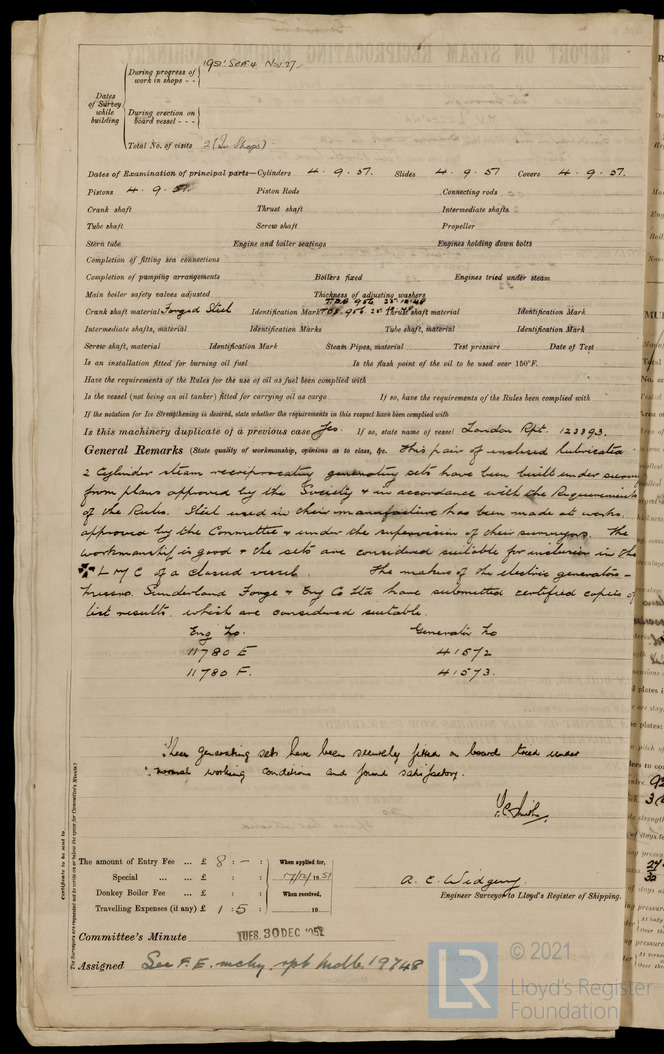 Dates of Survey while building
During progress of work in shops - - 1951: Sep 4 Nov. 27
During erection on board vessel - - -
Total No. of visits 2 (In Shops)
Dates of Examination of principal parts—Cylinders 4. 9. 51. Slides 4. 9. 51 Covers 4. 9. 51.
Pistons 4. 9. 51. Piston Rods Connecting rods
Crank shaft Thrust shaft Intermediate shafts
Tube shaft Screw shaft Propeller
Stern tube Engine and boiler seatings Engines holding down bolts
Completion of fitting sea connections
Completion of pumping arrangements Boilers fixed Engines tried under steam
Main boiler safety valves adjusted Thickness of adjusting washers
Crank shaft material Forged Steel Identification Mark Thrust shaft material Identification Mark
Intermediate shafts, material Identification Marks Tube shaft, material Identification Mark
Screw shaft, material Identification Mark Steam Pipes, material Test pressure Date of Test
Is an installation fitted for burning oil fuel Is the flash point of the oil to be used over 150°F.
Have the requirements of the Rules for the use of oil as fuel been complied with
Is the vessel (not being an oil tanker) fitted for carrying oil as cargo If so, have the requirements of the Rules been complied with
If the notation for Ice Strengthening is desired, state whether the requirements in this respect have been complied with
Is this machinery duplicate of a previous case Yes. If so, state name of vessel London Rpt. 123393.
General Remarks (State quality of workmanship, opinions as to class, &c. This pair of enclosed lubricated
2 Cylinder steam reciprocating generating sets have been built under survey
from plans approved by the Society & in accordance with the Requirements
of the Rules. Steel used in their manufacture has been made at works
approved by the Committee & under the supervision of their surveyors. The
workmanship is good & the sets are considered suitable for inclusion in the
✠ L M C of a classed vessel. The makers of the electric generators -
Messrs. Sunderland Forge & Eng Co Ltd have submitted certified copies of
test results which are considered suitable.
Eng No. Generator No
11780 E 41572
11780 F. 41573.
These generating sets have been securely fitted on board tried under
normal working conditions and found satisfactory.
Smith
The amount of Entry Fee ... £ 8 : - : When applied for,
Special ... ... £ : : 17/12/1951
Donkey Boiler Fee ... £ : : When received,
Travelling Expenses (if any) £ 1 : 5 : 19
A. E. Widgery
Engineer Surveyor to Lloyd's Register of Shipping.
Committee's Minute TUES. 30 DEC 1952
Assigned See F.E. mchy. rpt Mdb. 19748
Certificate to be sent to
The Surveyors are requested not to write on or below the space for Committee's Minute.
© 2021
LR
Lloyd's Register
Foundation